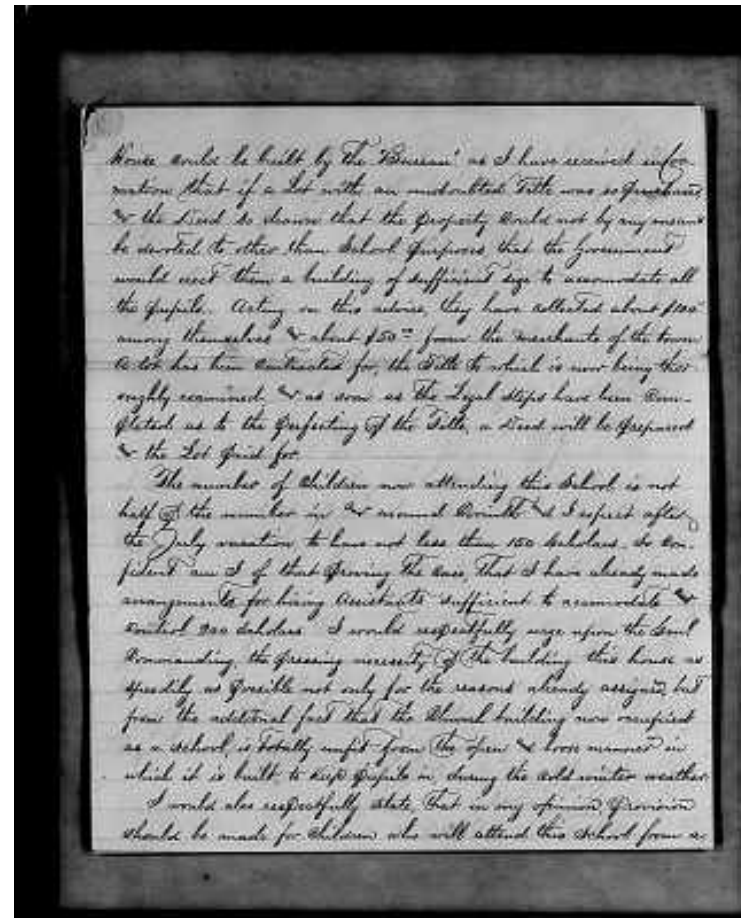 House could be built by the "Bureau" as I have received infor-
mation that if a Lot with an undoubted Title was so purchased
& the Deed so drawn that the property could not by any means
be devoted to other than School purposes that the Government
would erect them a building of sufficient size to accomodate all
the pupils. Acting on this advice, they have collected about $100
among themselves & about $50 from the Merchants of the town
A lot has been contracted for, the Title to which is now being thor
oughly examined & as soon as the Legal steps have been com-
pleted as to the perfecting of the Title, a Deed will be prepared
& the Lot paid for
The number of Children now attending this School is not
half of the number in & around & I expect after
the July vacation to have not less than 150 Scholars. So con-
fident am I of that proving the case, that I have already made
arrangements for hiring Assistants sufficient to accomodate &
control 200 Scholars I would respectfully urge upon the Genl
Commanding, the pressing necessity of the building this house as
speedily as possible not only for the reasons already assigned, but
from the additional fact that the Church building now occupied
as a School, is totally unfit from the open & loose manner in
which it is built to keep pupils in, during the cold winter weather
I would also respectfully state, that in my opinion, provision
should be made for Children who will attend this School from a